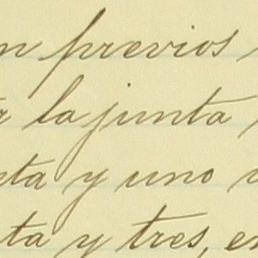 n previos
r la junta
ta y uno
ta y tres, en